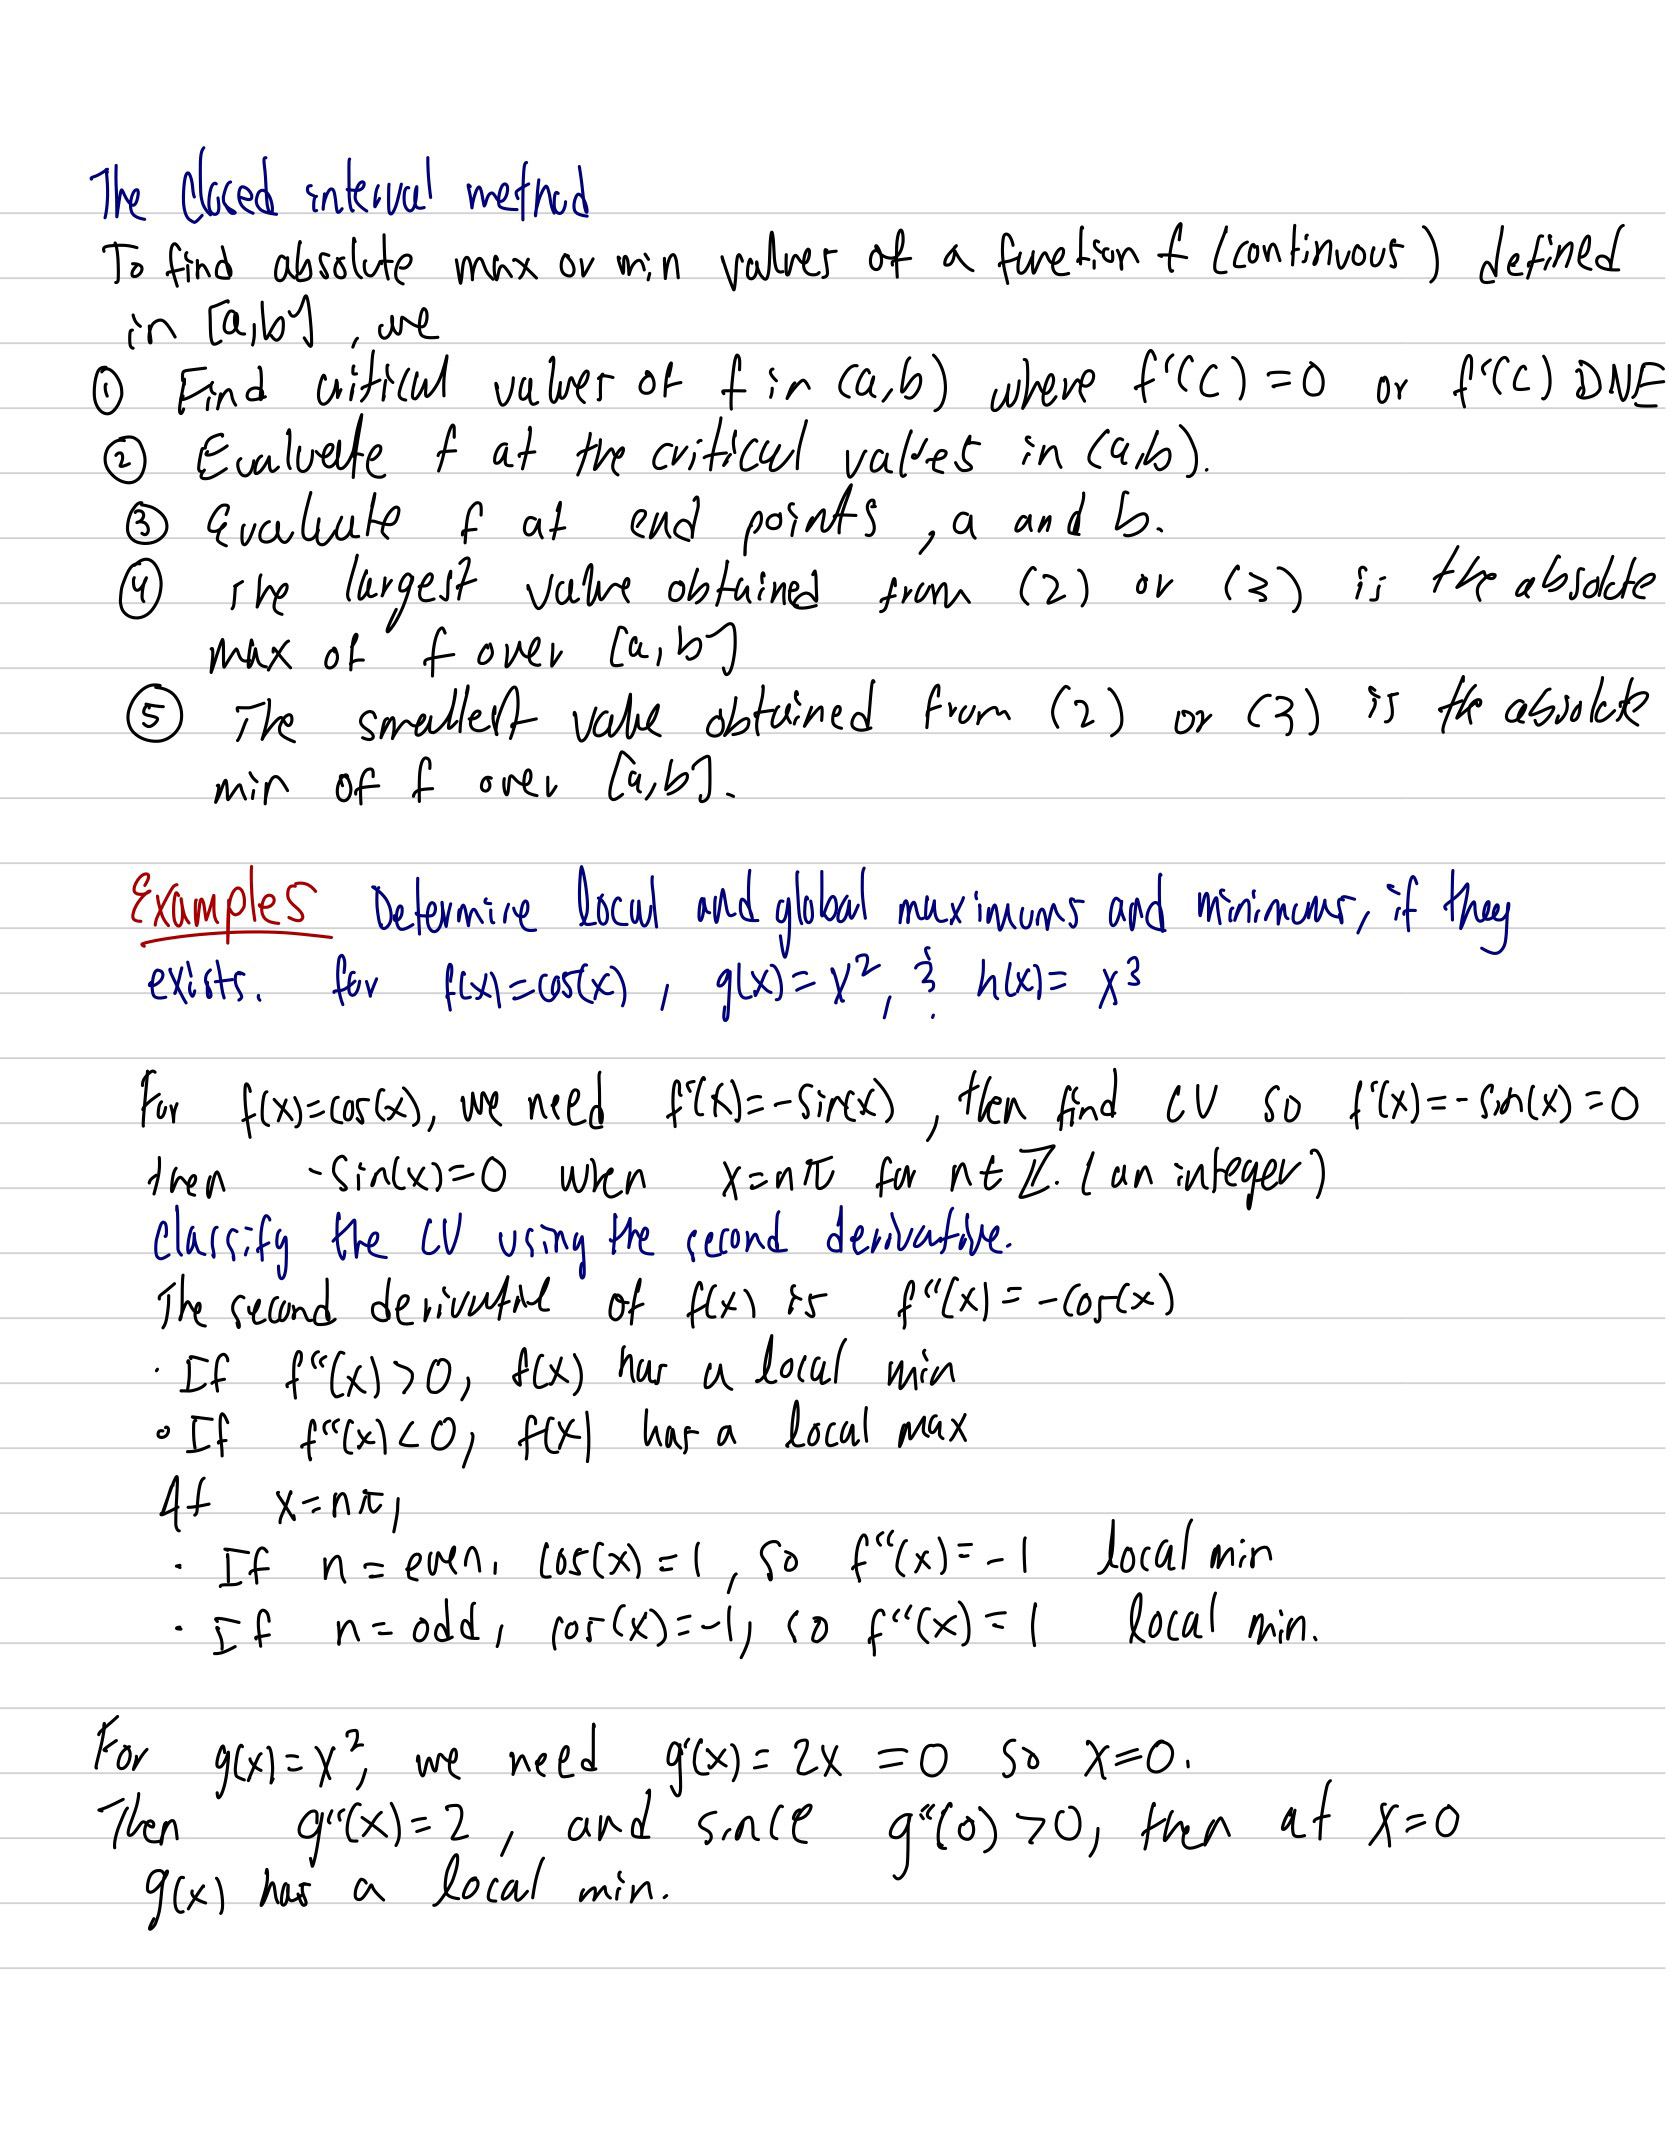 The Closed interval method
To find absolute max or min values of a function f (continuous) defined
in [a,b], we
① Find critical values of f in (a,b) where f'(c)=0 or f'(c) DNE
② Evaluate f at the critical values in (a,b).
③ Evaluate f at end points, a and b.
④ The largest value obtained from (2) or (3) is the absolute
max of f over [a,b]
⑤ The smallest value obtained from (2) or (3) is the absolute
min of f over [a,b].
Examples Determine local and global maximums and minimums, if they
exists. for f(x)=cos(x), g(x)=x², & h(x)=x³
For f(x)=cos(x), we need f'(x)=-sin(x), then find CV so f'(x)=-sin(x)=0
then -sin(x)=0 when x=nπ for n∈ℤ. (an integer)
Classify the CV using the second derivative.
The second derivative of f(x) is f''(x)=-cos(x)
· If f''(x)>0, f(x) has a local min
· If f''(x)<0, f(x) has a local max
At x=nπ,
· If n=even, cos(x)=1, so f''(x)=-1 local min
· If n=odd, cos(x)=-1, so f''(x)=1 local min.
For g(x)=x², we need g'(x)=2x=0 so x=0.
Then g''(x)=2, and since g''(0)>0, then at x=0
g(x) has a local min.